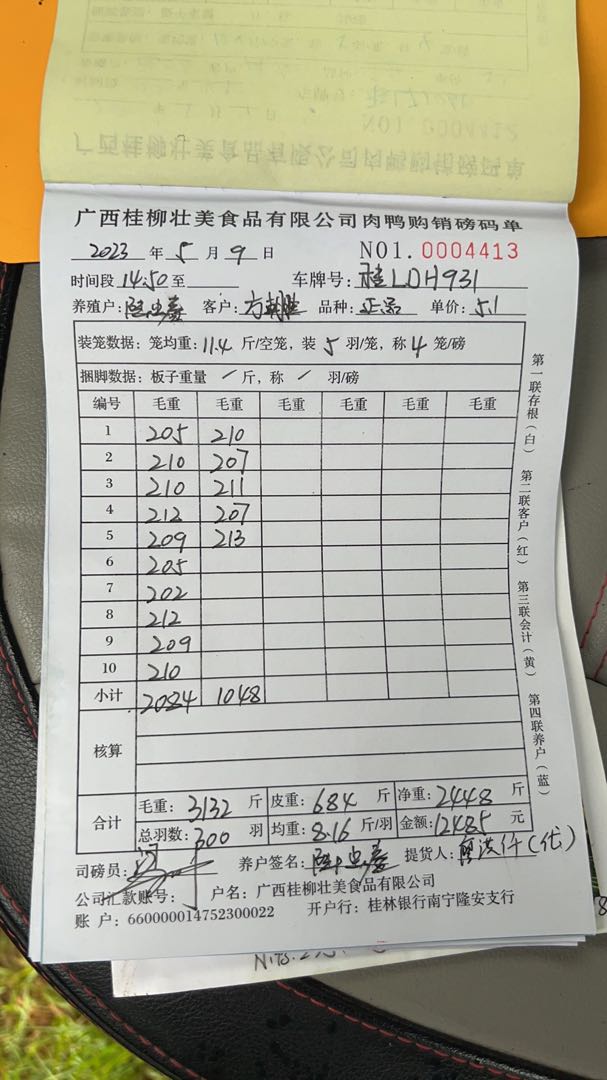 NO1 0004412
广西桂柳壮美食品有限公司肉鸭购销磅码单
广西桂柳壮美食品有限公司肉鸭购销磅码单
2023 年 5 月 9 日 NO1.0004413
时间段 14:50 至 车牌号: 桂LDH931
养殖户: 客户: 品种: 正品 单价: 5.1
装笼数据: 笼均重: 11.4 斤/空笼, 装 5 羽/笼, 称 4 笼/磅
捆脚数据: 板子重量 / 斤, 称 / 羽/磅
编号 毛重 毛重 毛重 毛重 毛重 毛重
1 205 210
2 210 207
3 210 211
4 212 207
5 209 213
6 205
7 202
8 212
9 209
10 210
小计 2084 1048
核算
合计 毛重: 3132 斤 皮重: 684 斤 净重: 2448 斤
总羽数: 300 羽 均重: 8.16 斤/羽 金额: 12485 元
司磅员: 养户签名: 提货人: (代)
公司汇款账号: 户名: 广西桂柳壮美食品有限公司
账 户: 660000014752300022 开户行: 桂林银行南宁隆安支行
第一联存根(白) 第二联客户(红) 第三联会计(黄) 第四联养户(蓝)